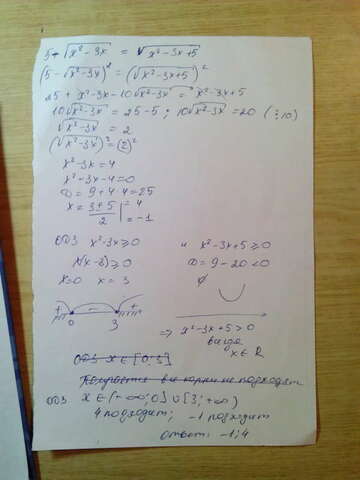 5 - √x²-3x = √x²-3x+5
(5 - √x²-3x)² = (√x²-3x+5)²
25 + x²-3x - 10√x²-3x = x²-3x+5
10√x²-3x = 25-5; 10√x²-3x = 20 (:10)
√x²-3x = 2
(√x²-3x)² = (2)²
x²-3x=4
x²-3x-4=0
D = 9+4·4=25
x = 3±5/2 | = 4
= -1
ОДЗ x²-3x≥0 и x²-3x+5≥0
x(x-3)≥0 D = 9-20<0
x=0 x=3 ∅
+ - +
0 3
⇒ x²-3x+5>0
всегда
x∈R
ОДЗ x∈[0;3]
корни не подходят
ОДЗ x∈(-∞;0]∪[3;+∞)
4 подходит; -1 подходит
ответ: -1; 4